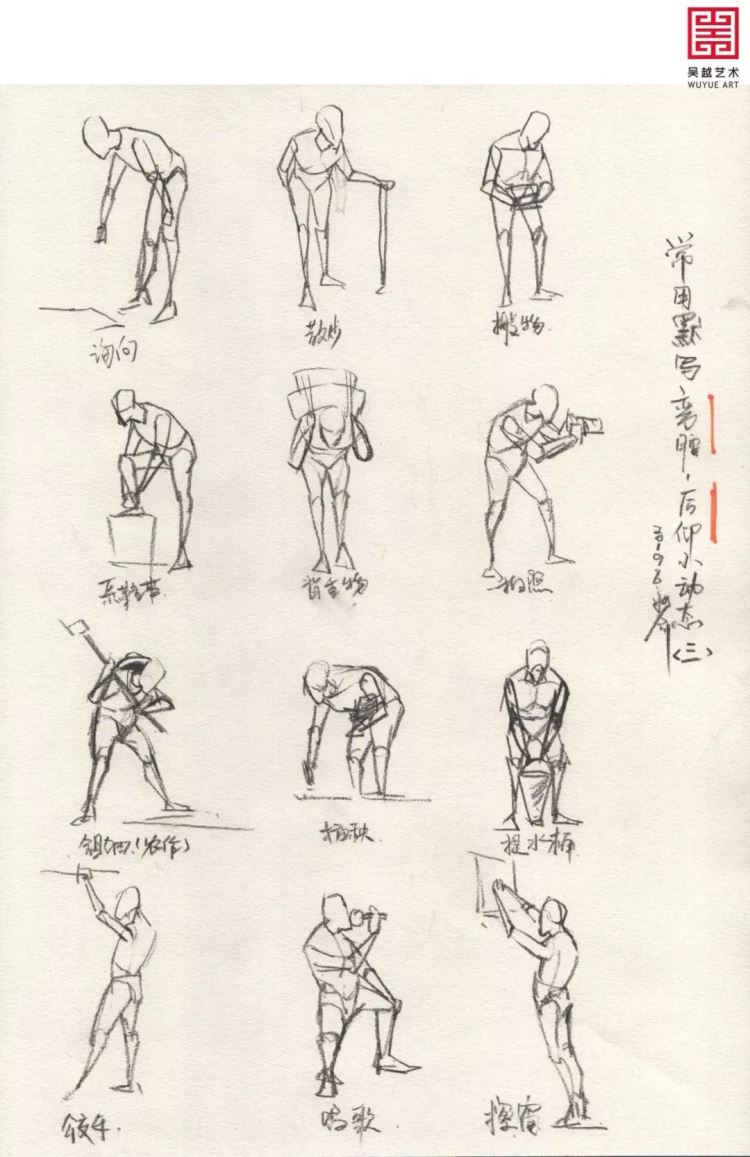 吴越艺术
WUYUE ART
常用默写弯腰，后仰小动态<三>
询问
散步
搬物.
系鞋带
背重物
拍照
锄田(农作)
插秧
提水桶
公交车.
唱歌.
擦窗